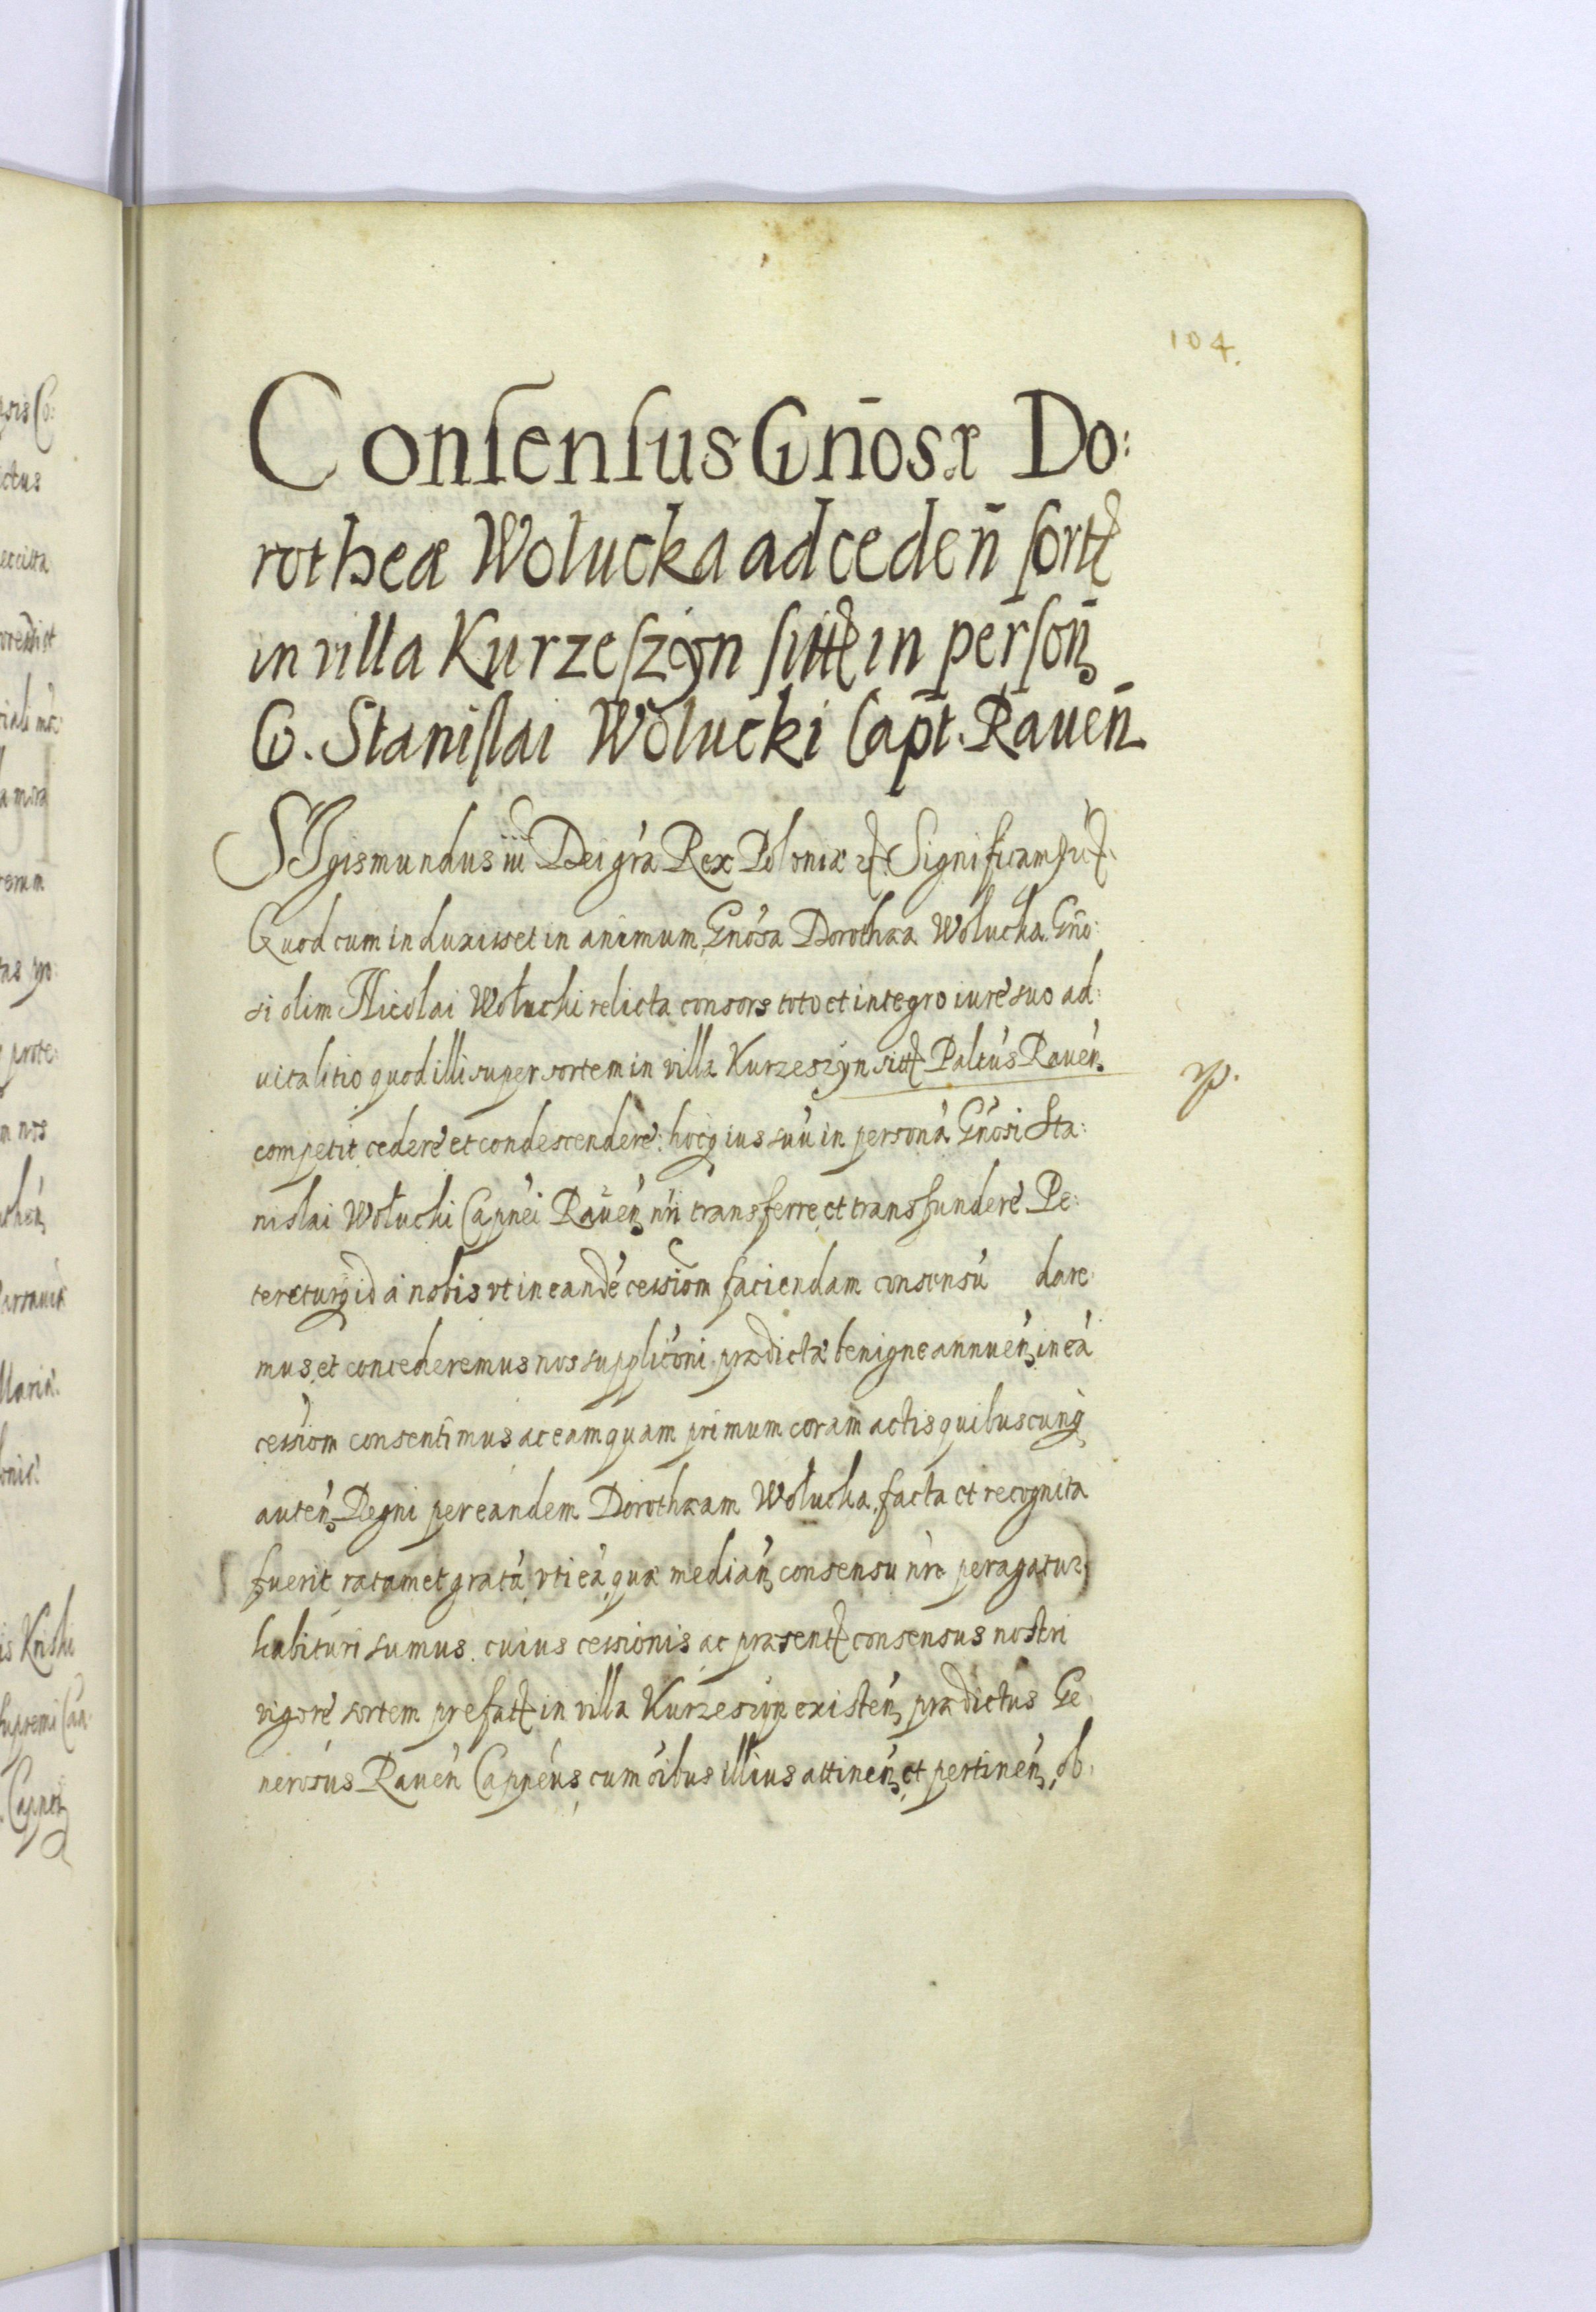 104.
Consensus Gnōsæ Do:
rotheæ Wolucka ad ceden̄ sort
in villa Kurzeszyn sitt in person̄
G. Stanislai Wolucki Capt. Raven̄
SIgismundus iii Dei gra Rex Poloniæ Significam
Quod cum induxisset in animum Gnosa Dorothæa Wolucka Gno:
si olim Nicolai Wolucki relicta consors toto et integro iure suo ad:
vitalitio quod illi super sortem in villa Kurzeszyn sitt Paltus Raven.
competit cedere et condescendere: hocq ius suu in persona Gnosi Sta:
nislai Wolucki Capnei Raven nri transferre et transfundere Pe:
tereturq id a nobis vt in eande cessiom faciendam consensu dare:
mus et concederemus nos suppliconi prædictæ benigne annuen in ea
cessiom consentimus ac eam quam primum coram actis quibuscunq
auten Regni per eandem Dorothæam Wolucka facta et recognita
fuerit ratam et gratu vti ea quæ median consensu nro peragatur
habituri sumus. cuius cessionis ac præsent consensus nostri
vigore sortem prefatt in villa Kurzeszyn existen prædictus Ge
nerosus Raven Capneus cum oibus illius attinen et pertinen ob: